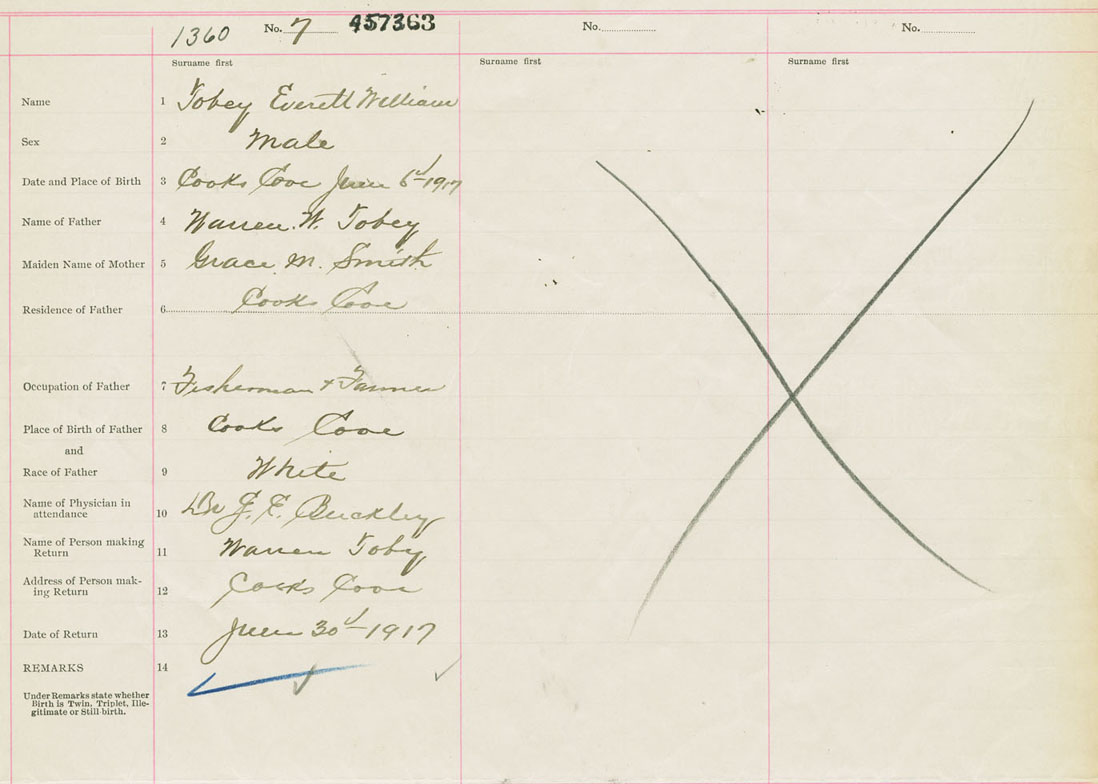 1360 No. 7 457363 No. No.
Surname first Surname first Surname first
Name 1 Tobey Everett William
Sex 2 Male
Date and Place of Birth 3 Cooks Cove June 6th 1917
Name of Father 4 Warren. W. Tobey
Maiden Name of Mother 5 Grace M. Smith
Residence of Father 6 Cooks Cove
Occupation of Father 7 Fisherman + Farmer
Place of Birth of Father 8 Cooks Cove
and
Race of Father 9 White
Name of Physician in
attendance 10 Dr G. E. Buckley
Name of Person making
Return 11 Warren Tobey
Address of Person mak-
ing Return 12 Cooks Cove
Date of Return 13 June 30th 1917
REMARKS 14
Under Remarks state whether
Birth is Twin, Triplet, Ille-
gitimate or Still-birth.